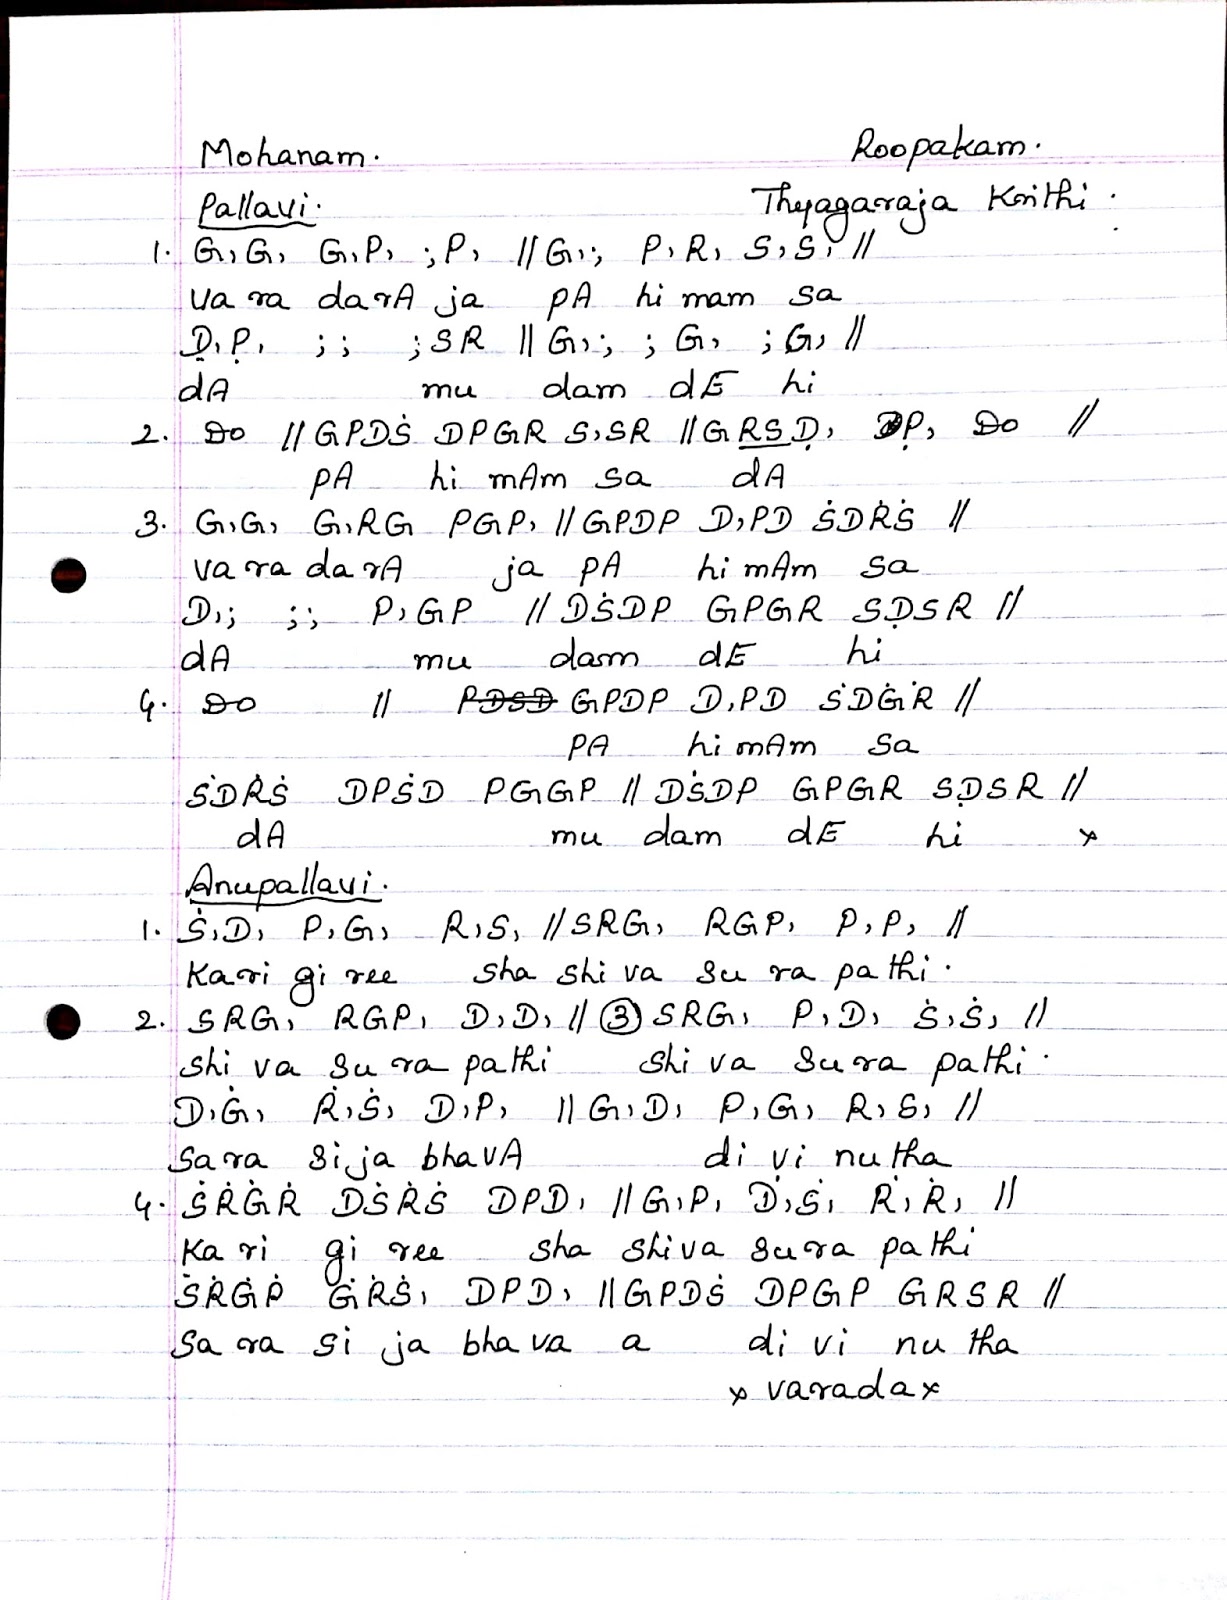 Mohanam. Roopakam.
Pallavi. Thyagaraja Krithi.
1. G,G, G,P, ;P, // G,; P,R, S,S, //
va ra darA ja pA hi mam sa
Ḍ,P̣, ;; ;SR // G,; ;G, ;G, //
dA mu dam dE hi
2. Do // GPDṠ DPGR S,SR // GRSḌ, P̣, Do //
pA hi mAm sa dA
3. G,G, G,RG PGP, // GPDP D,PD ṠDṘṠ //
va ra da rA ja pA hi mAm sa
D,; ;; P,GP // DṠDP GPGR SḌSR //
dA mu dam dE hi
4. Do // PDSD GPDP D,PD ṠDĠṘ //
PA hi mAm sa
ṠDṘṠ DPṠD PGGP // DṠDP GPGR SḌSR //
dA mu dam dE hi x
Anupallavi.
1. Ṡ,D, P,G, R,S, // SRG, RGP, P,P, //
Kari gi ree sha shi va su ra pa thi.
2. SRG, RGP, D,D, // ③ SRG, P,D, Ṡ,Ṡ, //
shi va su ra pa thi shi va su ra pa thi.
D,Ġ, Ṙ,Ṡ, D,P, // G,D, P,G, R,S, //
Sa ra si ja bhavA di vi nu tha
4. ṠṘĠṘ DṠṘṠ DPD, // G,P, Ḋ,Ṡ, Ṙ,Ṙ, //
Ka ri gi ree sha shiva su ra pa thi
ṠṘĠṖ ĠṘṠ, DPD, // GPDṠ DPGP GRSR //
Sa ra si ja bha va a di vi nu tha
x varada x